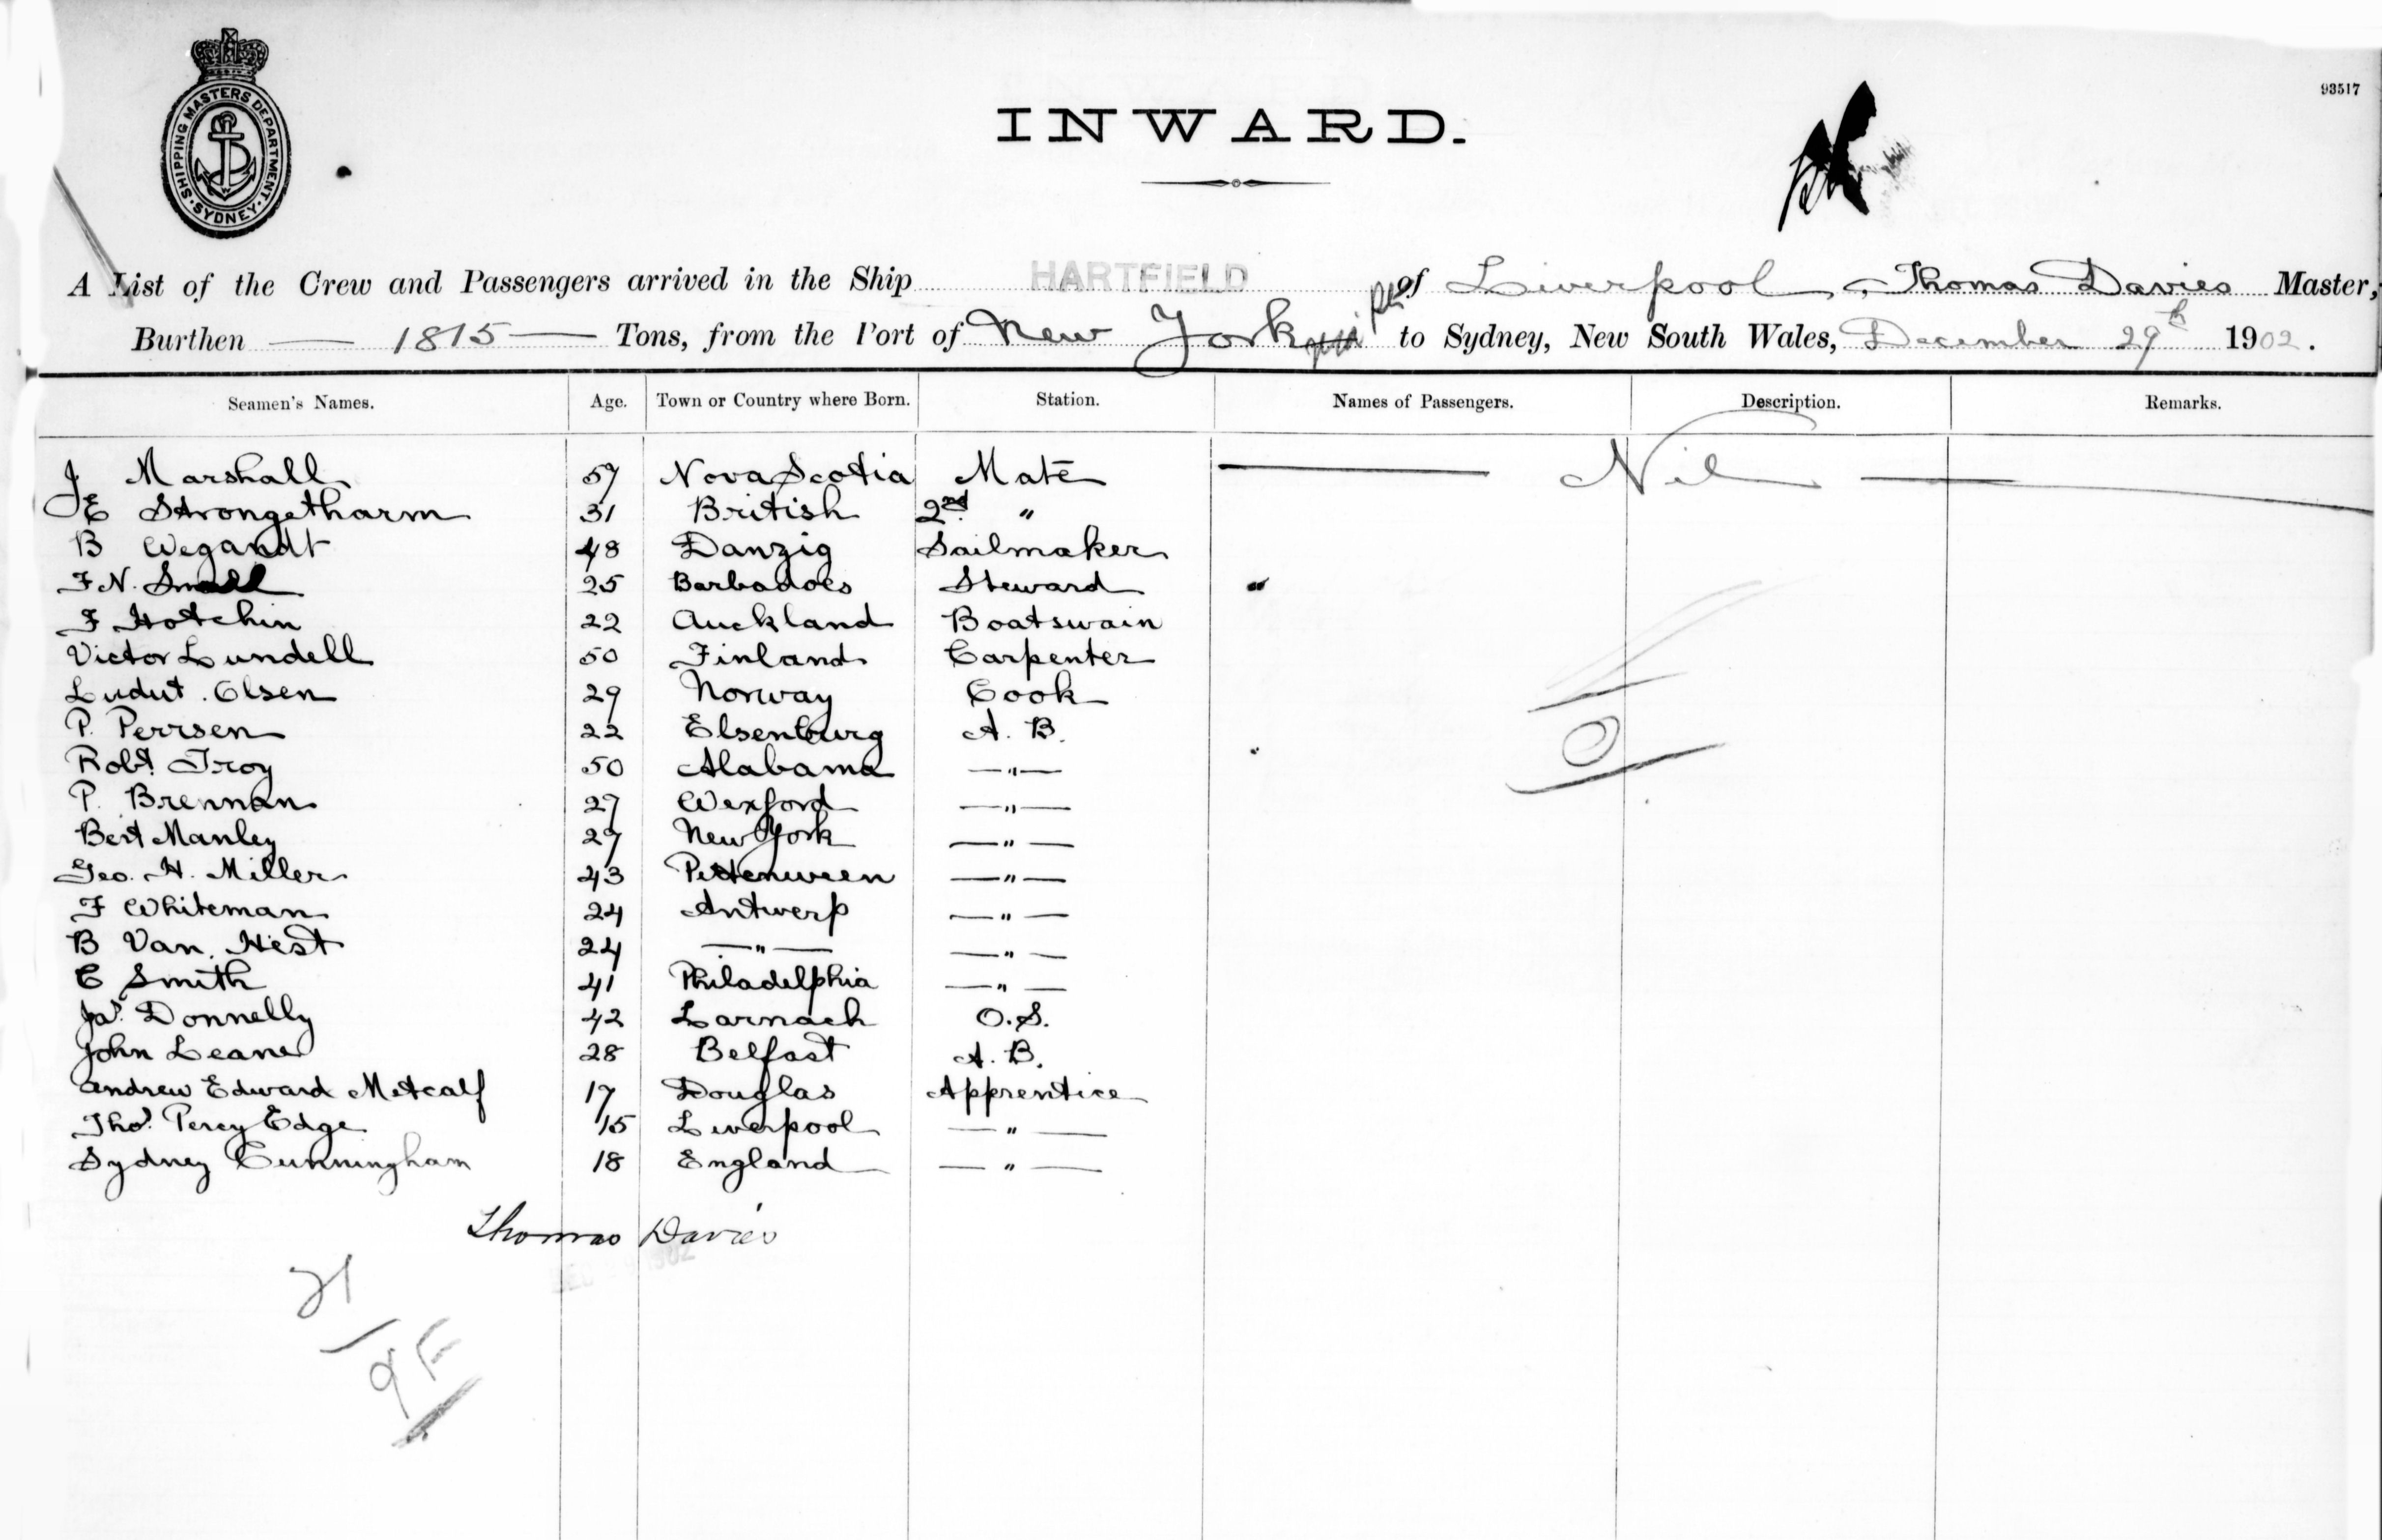 SHIPPING MASTERS DEPARTMENT
SYDNEY
93517
INWARD.
A List of the Crew and Passengers arrived in the Ship HARTFIELD of Liverpool, Thomas Davies Master,
Burthen 1815 Tons, from the Port of New York to Sydney, New South Wales, December 29th 1902.
Seamen's Names. Age. Town or Country where Born. Station. Names of Passengers. Description. Remarks.
J Marshall 57 Nova Scotia Mate Nil
J E Strongetharm 31 British 2nd "
B Wegandt 48 Danzig Sailmaker
F N. Small 25 Barbadoes Steward
F Hotchin 22 Auckland Boatswain
Victor Lundell 50 Finland Carpenter
Ludut. Olsen 29 Norway Cook
P. Perrsen 22 Elsenburg A. B.
Robt. Troy 50 Alabama — " —
P. Brennan 27 Wexford — " —
Bert Manley 27 New York — " —
Geo. H. Miller 43 — " —
F Whiteman 24 Antwerp — " —
B Van. Hest 24 — " — — " —
C Smith 41 Philadelphia — " —
Jas. Donnelly 42 Larnach O.S.
John Leane 28 Belfast A. B.
Andrew Edward Metcalf 17 Douglas Apprentice
Thos. Percy Edge 15 Liverpool — " —
Sydney Cunningham 18 England — " —
Thomas Davies
21
9F